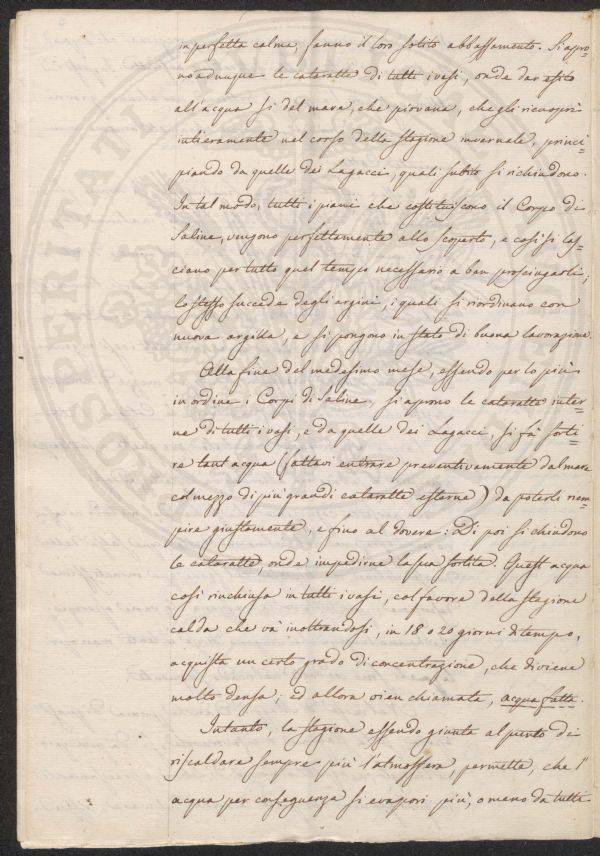 in perfetta calma, fanno il loro solito abbassamento. Si apro-
no adunque le cataratte di tutti i vasi, onde dar esito
all'acqua sì del mare, che piovana, che gli ricuoprì
intieramente nel corso della stagione invernale, princi=
piando da quelle dei Lagacci, quali subito si richiudono.
In tal modo, tutti i piani che costituiscono il Corpo di
Saline, vengono perfettamente allo scoperto, e così si las=
ciano per tutto quel tempo necessario a ben prosciugarli;
lo stesso succede degli argini, i quali si riordinano con
nuova argilla, e si pongono in stato di buona lavorazione.
Alla fine del medesimo mese, essendo per lo più
in ordine i Corpi di Saline, si aprono le cataratte inter=
ne di tutti i vasi, e da quelle dei Lagacci, si fà sorti=
re tant'acqua (fattavi entrare preventivamente dal mare
col mezzo di più grandi cataratte esterne) da poterli riem=
pire giustamente, e fino al dovere: Di poi si chiudono
le cataratte, onde impedirne la sua sortita. Quest'acqua
così rinchiusa in tutti i vasi, col favore della stagione
calda che và inoltrandosi, in 18 o 20 giorni di tempo,
acquista un certo grado di concentrazione, che diviene
molto densa; ed allora vien chiamata, acqua fatta.
Intanto, la stagione essendo giunta al punto di
riscaldare sempre più l'atmosfera, permette, che l'
acqua per conseguenza si evapori più, o meno da tutti
PROSPERITATI